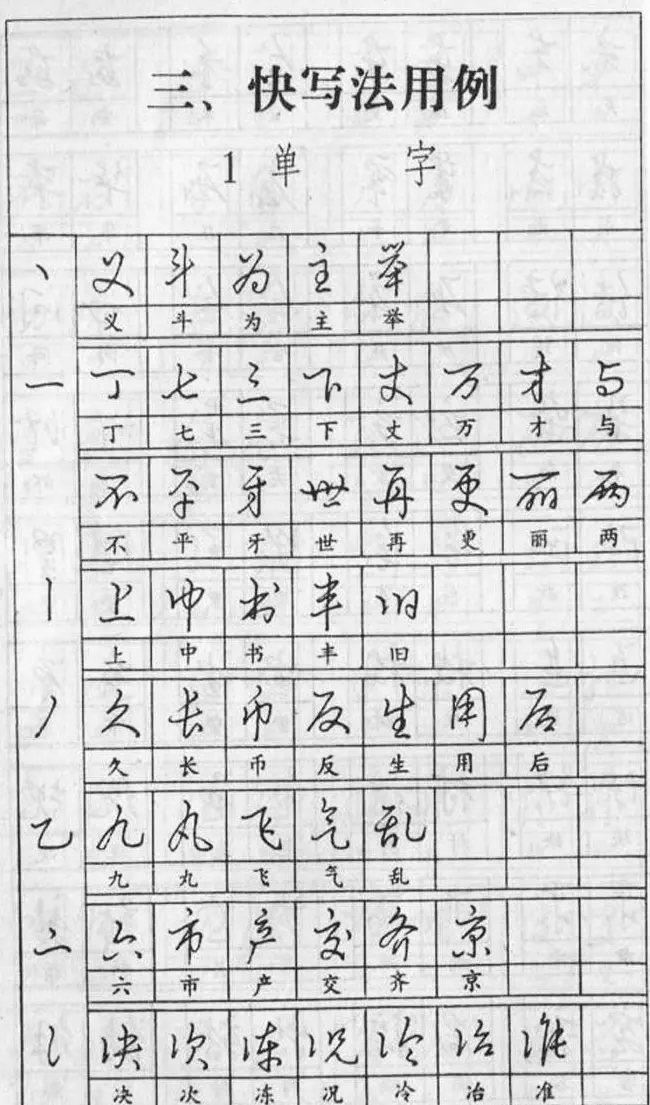 三、快写法用例
1 单 字
丶 义 斗 为 主 举
义 斗 为 主 举
一 丁 七 三 下 丈 万 才 与
丁 七 三 下 丈 万 才 与
不 平 牙 世 再 更 丽 两
不 平 牙 世 再 更 丽 两
丨 上 中 书 丰 旧
上 中 书 丰 旧
丿 久 长 币 反 生 用 后
久 长 币 反 生 用 后
乙 九 丸 飞 气 乱
九 丸 飞 气 乱
亠 六 市 产 交 齐 京
六 市 产 交 齐 京
冫 决 次 冻 况 冷 冶 准
决 次 冻 况 冷 冶 准